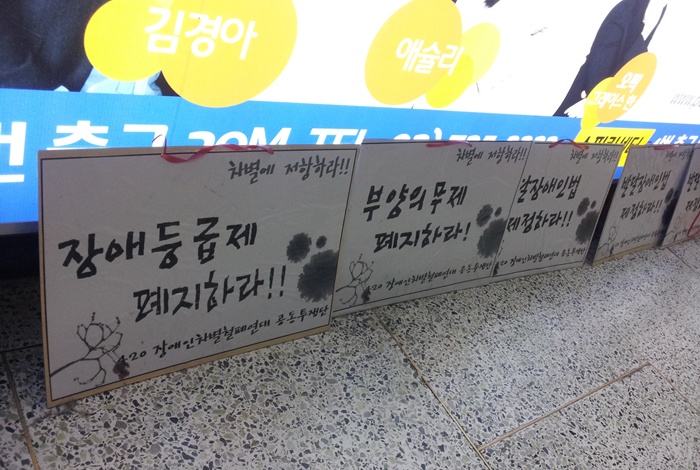 김경아
애슐리
오뻑
그레이스 한
번 출구 20M TEL
차별에 저항하라!!
장애등급제
폐지하라!!
420 장애인차별철폐연대 공동투쟁단
차별에 저항하라!!
부양의무제
폐지하라!
420 장애인차별철폐연대 공동투쟁단
차별에 저항하라!!
달장애인법
제정하라!!
420 장애인차별철폐연대 공동투쟁단
발달장애인법
제정하라!!